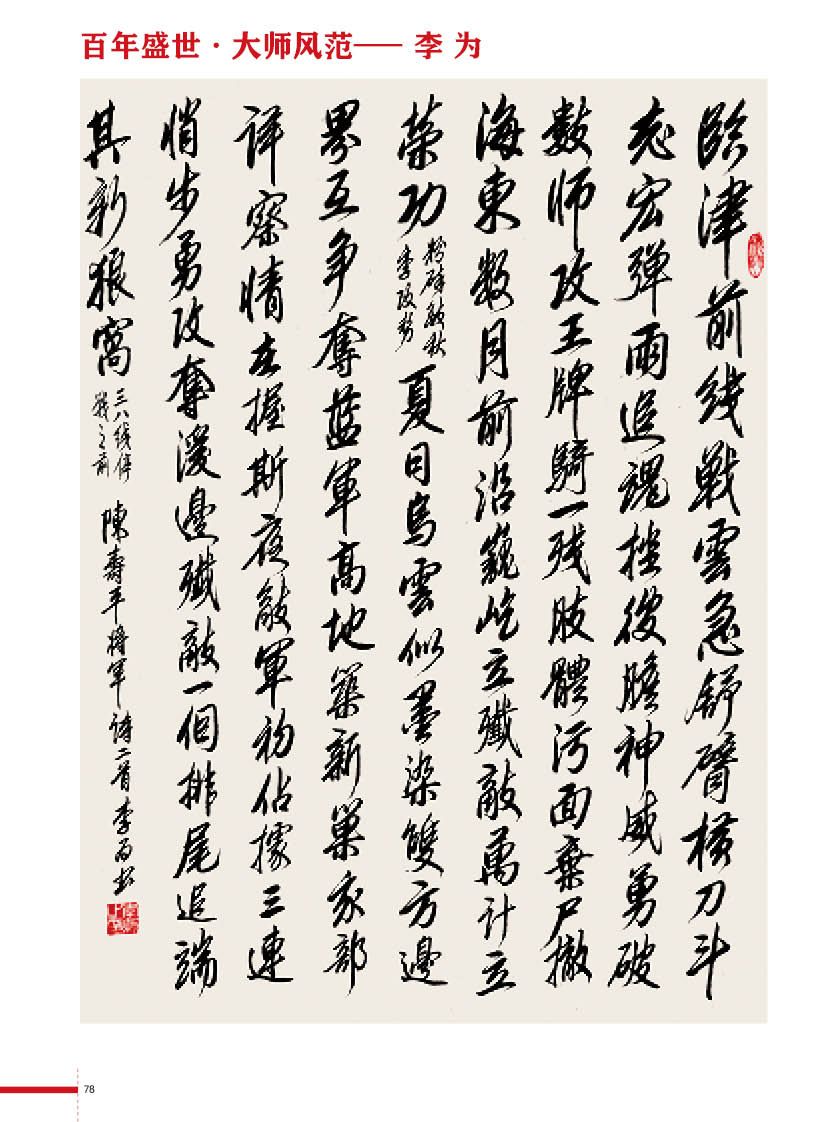 百年盛世·大师风范—— 李 为
臨津前线戰雲急舒臂横刀斗
志宏彈雨追魂挫後膽神威勇破
數师攻王牌騎一残肢體污面棄尸撤
海東数月前沿巍屹立殲敵萬计立
榮功
粉碎敵秋
季攻势
夏日烏雲似墨染雙方邊
界互争奪蓝軍高地築新巢我部
详察情在握斯夜敵軍初佔據三連
悄步勇攻奪漫邊殲敵一個排尾追端
其新狼窩
三八线停
戰之前
陳壽平将军诗二首李为书
78